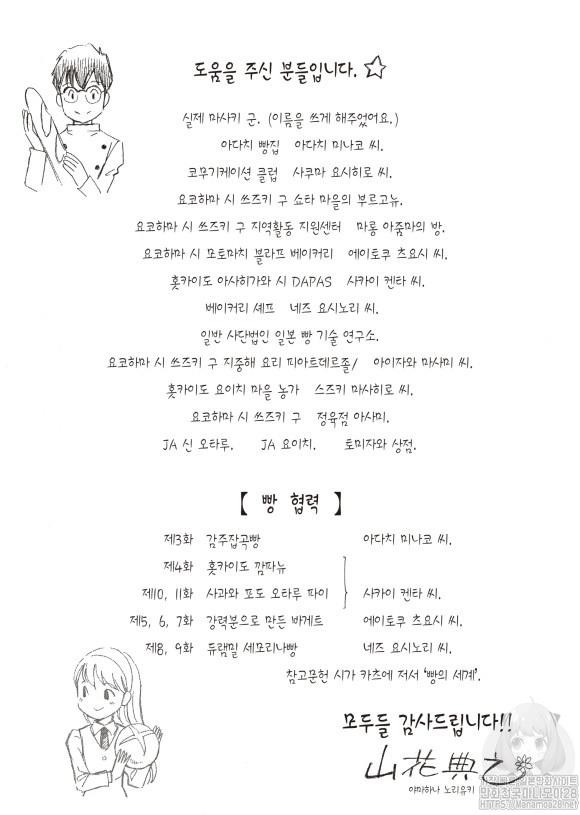 도움을 주신 분들입니다. ☆
실제 마사키 군. (이름을 쓰게 해주었어요.)
아다치 빵집 아다치 미나코 씨.
코우기케이션 클럽 사쿠마 요시히로 씨.
요코하마 시 쓰즈키 구 쇼타 마을의 부르고뉴.
요코하마 시 쓰즈키 구 지역활동 지원센터 마롱 아줌마의 방.
요코하마 시 모토마치 블라프 베이커리 에이토쿠 츠요시 씨.
홋카이도 아사히가와 시 DAPAS 사카이 켄타 씨.
베이커리 셰프 네즈 요시노리 씨.
일반 사단법인 일본 빵 기술 연구소.
요코하마 시 쓰즈키 구 지중해 요리 피아트데르졸/ 아이자와 마사미 씨.
홋카이도 요이치 마을 농가 스즈키 마사히로 씨.
요코하마 시 쓰즈키 구 정육점 아사미.
JA 신 오타루. JA 요이치. 토미자와 상점.
【 빵 협력 】
제3화 감주잡곡빵 아다치 미나코 씨.
제4화 홋카이도 깜파뉴
제10, 11화 사과와 포도 오타루 파이 사카이 켄타 씨.
제5, 6, 7화 강력분으로 만든 바게트 에이토쿠 츠요시 씨.
제8, 9화 듀램밀 세모리나빵 네즈 요시노리 씨.
참고문헌 시가 카츠에 저서 '빵의 세계'.
모두들 감사드립니다!!
山花典之
야마하나 노리유키
만화천국마나모아28
HTTPS://MANAMOA28.COM